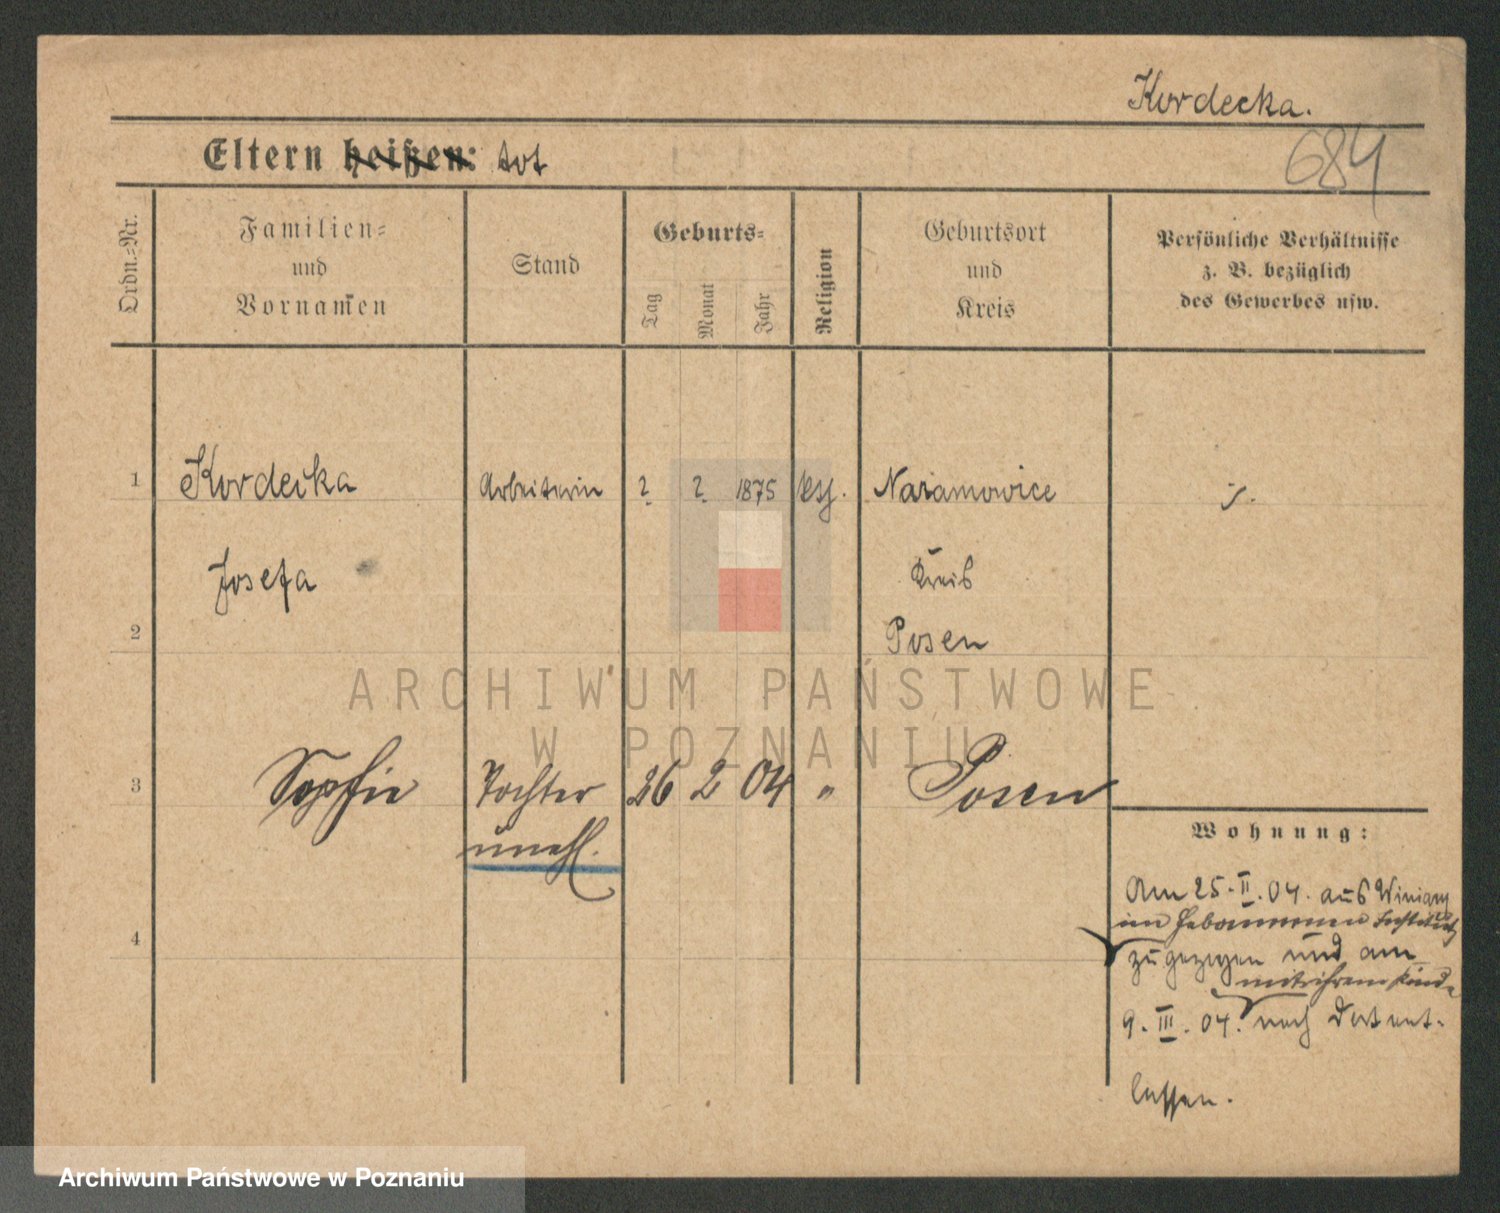 Kordecka.
684
Eltern heißen: tot
Ordn.-Nr.
Familien-
und
Vornamen
Stand
Geburts-
Tag
Monat
Jahr
Religion
Geburtsort
und
Kreis
Persönliche Verhältnisse
z. B. bezüglich
des Gewerbes usw.
1 Kordecka Arbeiterin ? ? 1875 Naramowice
Josefa Kreis
2 Posen
3 Sopfie Tochter 26 2 04 " Posen
unehl.
4
Wohnung:
Am 25. II. 04. aus Winiary
im Hebammen Institut
zugezogen und am
mit ihrem Kinde
9. III. 04. nach dort ent-
lassen.
ARCHIWUM PAŃSTWOWE
W POZNANIU
Archiwum Państwowe w Poznaniu